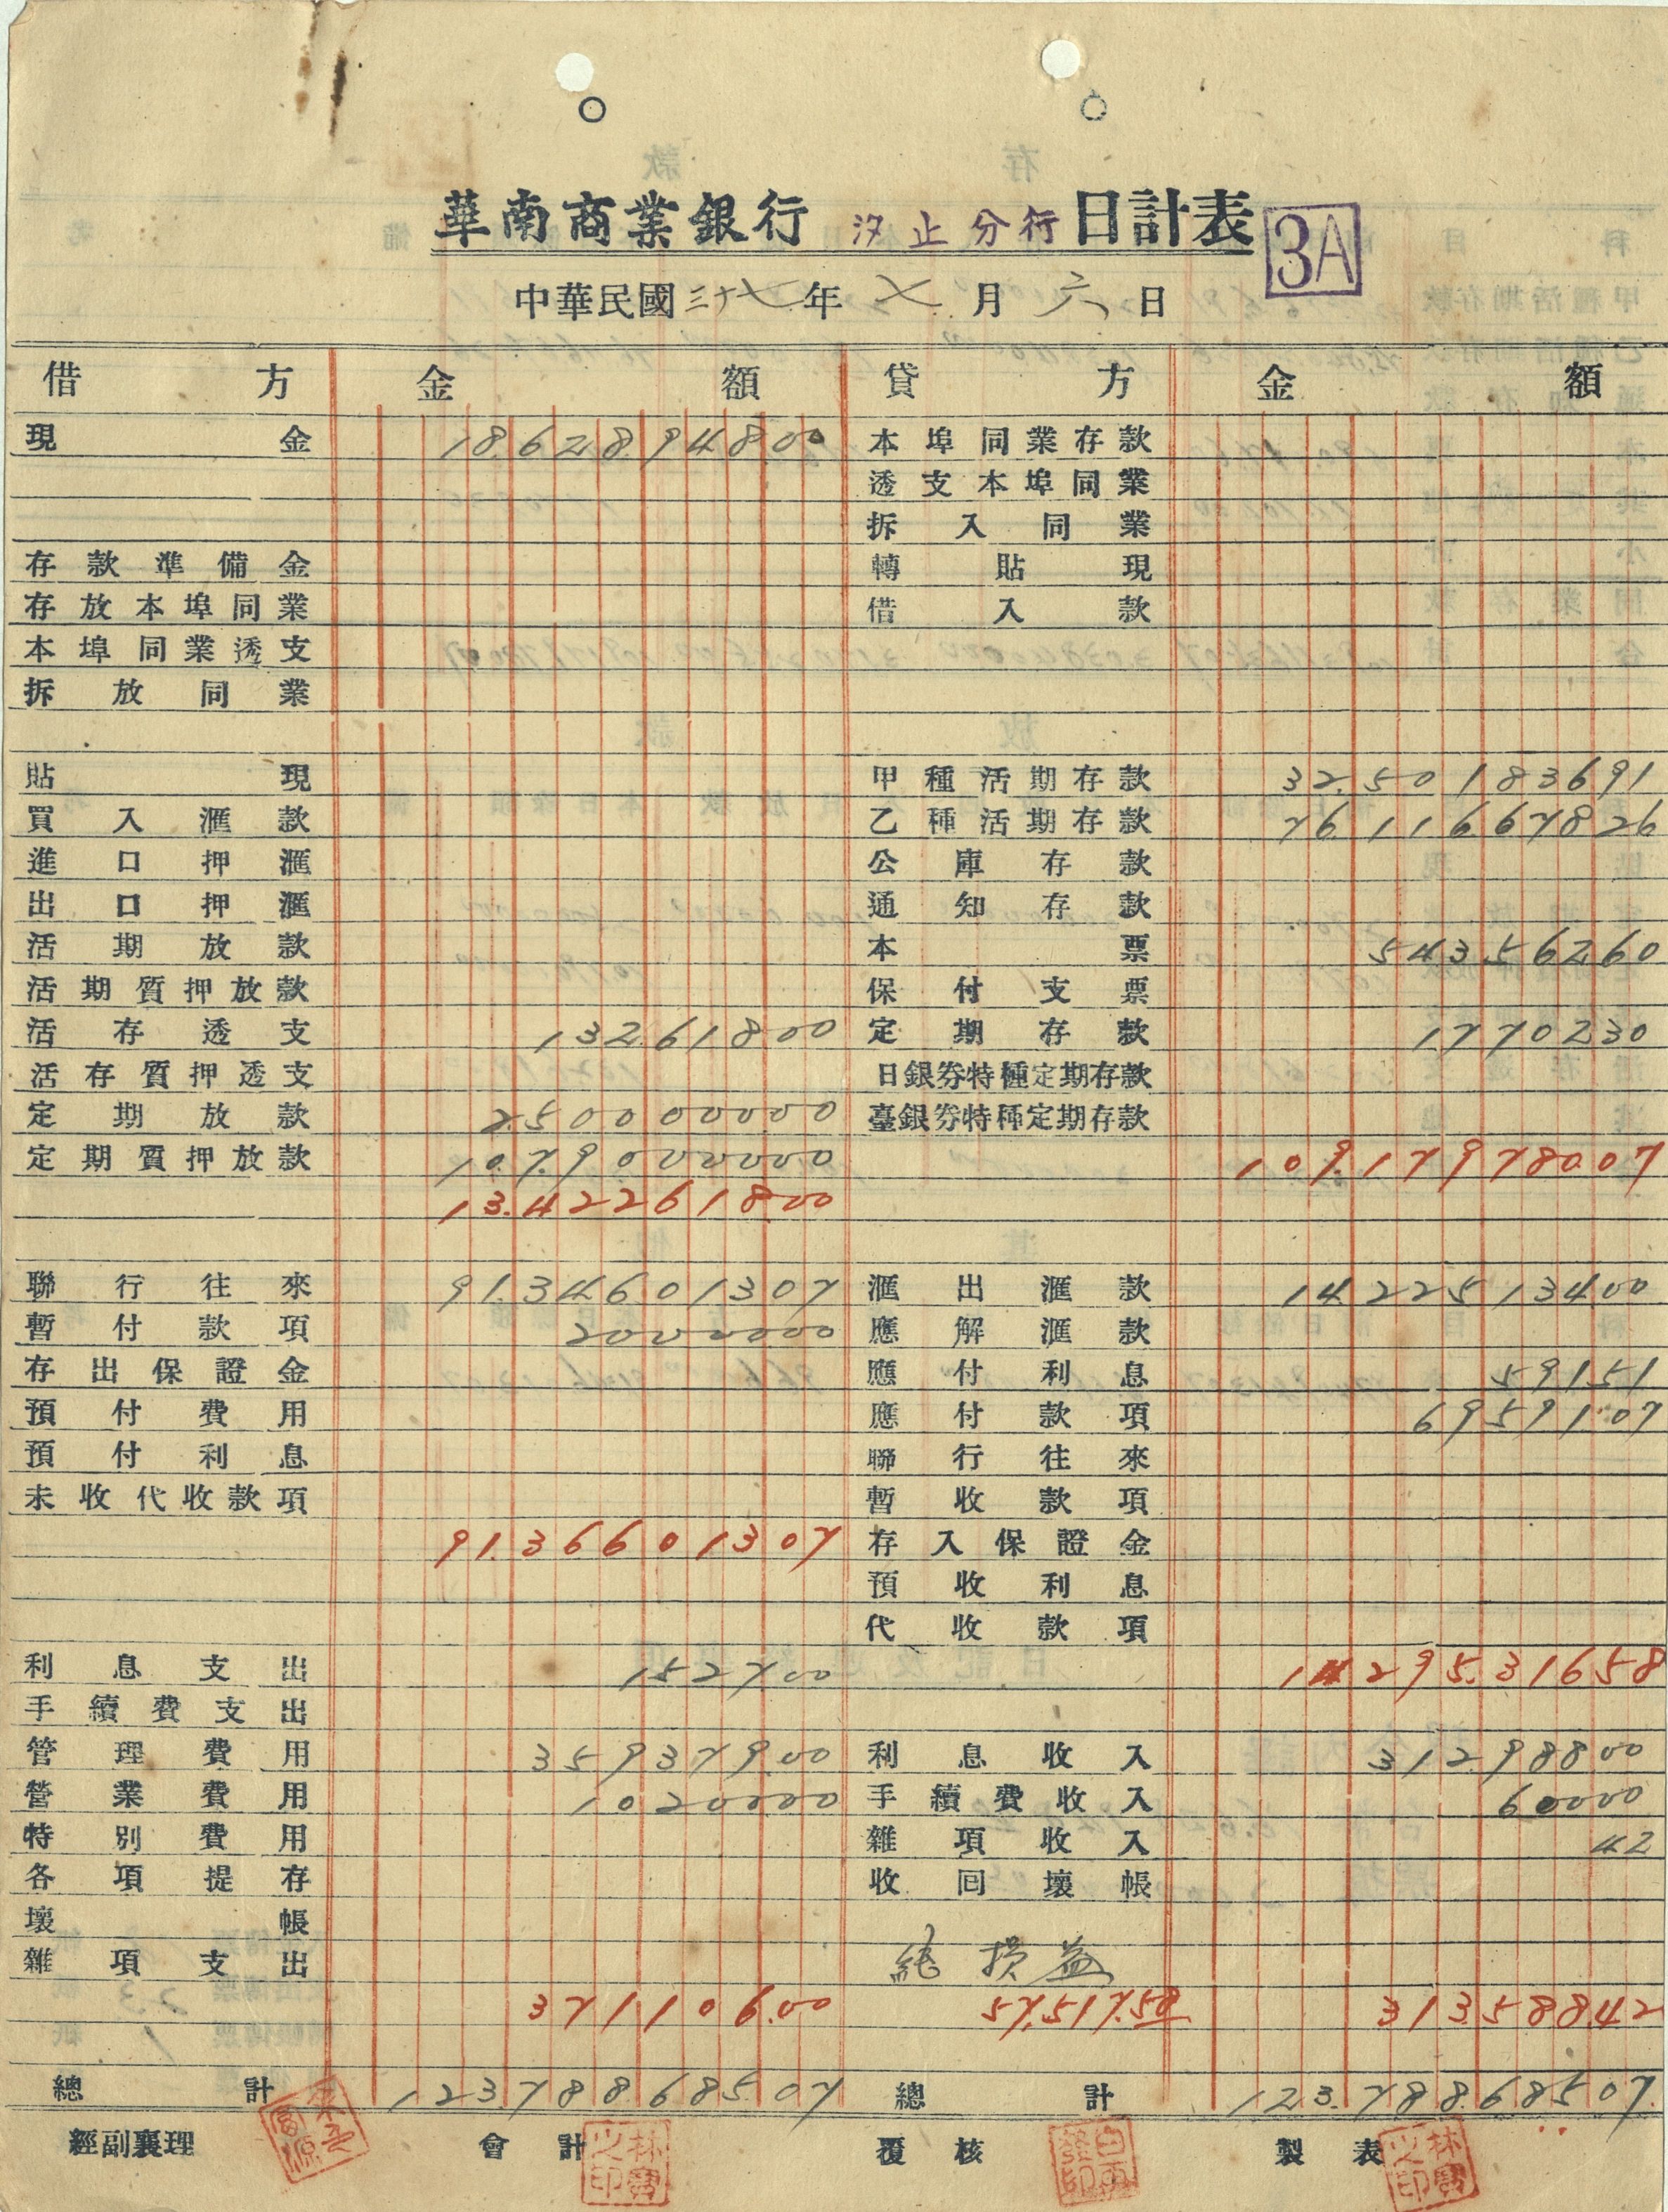 華南商業銀行 汐止分行 日計表 3A
中華民國三十七年七月六日
借方 金額 貸方 金額
現金 18,628,948.00 本埠同業存款
透支本埠同業
拆入同業
存款準備金 轉貼現
存放本埠同業 借入款
本埠同業透支
拆放同業
貼現 甲種活期存款 32,501,836.91
買入滙款 乙種活期存款 76,116,678.26
進口押滙 公庫存款
出口押滙 通知存款
活期放款 本票 543,562.60
活期質押放款 保付支票
活存透支 132,618.00 定期存款 17,702.30
活存質押透支 日銀券特種定期存款
定期放款 2,500,000.00 臺銀券特種定期存款
定期質押放款 10,790,000.00 109,179,780.07
13,422,618.00
聯行往來 91,346,013.07 滙出滙款 14,225,134.00
暫付款項 20,000.00 應解滙款
存出保證金 應付利息 591.51
預付費用 應付款項 69,591.07
預付利息 聯行往來
未收代收款項 暫收款項
91,366,013.07 存入保證金
預收利息
代收款項
利息支出 1,527.00 14,295,316.58
手續費支出
管理費用 359,379.00 利息收入 312,988.00
營業費用 10,200.00 手續費收入 600.00
特別費用 雜項收入 42
各項提存 收回壞帳
壞帳
雜項支出 純損益
371,106.00 57,517.58 313,588.42
總計 123,788,685.07 總計 123,788,685.07
經副襄理 會計 覆核 製表
林寶之印 林寶之印